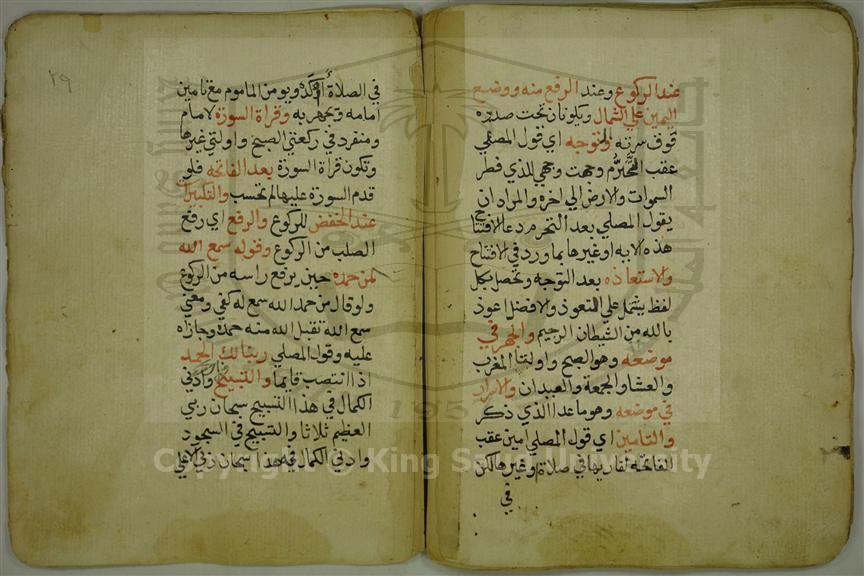 عند الركوع وعند الرفع منه ووضع
اليمين على الشمال ويكونان تحت صدره
فوق سرته والتوجه اي قول المصلي
عقب التحرم وجهت وجهي للذي فطر
السموات والارض الى اخره والمراد ان
يقول المصلي بعد التحرم دعا الافتتاح
هذه الاية او غيرها بما ورد في الافتتاح
والاستعاذه بعد التوجه وتحصل بكل
لفظ يشتمل على التعوذ والافضل اعوذ
بالله من الشيطان الرجيم والجهر في
موضعه وهو الصبح واولتا المغرب
والعشا والجمعة والعيدان والاسرار
في موضعه وهو ما عدا الذي ذكر
والتامين اي قول المصلي امين عقب
الفاتحه لقاريها في صلاة وغيرها لكن
في
٢٩
في الصلاة أوكد ويومن الماموم مع تامين
امامه ويجهر به وقراة السورة لامام
ومنفرد في ركعتي الصبح واولتي غيرها
وتكون قراة السورة بعد الفاتحه فلو
قدم السورة عليها لم تحسب والتكبيرات
عند الخفض للركوع والرفع اي رفع
الصلب من الركوع وقوله سمع الله
لمن حمده حين يرفع راسه من الركوع
ولو قال من حمد الله سمع له كفي ومعني
سمع الله تقبل الله منه حمده وجازاه
عليه وقول المصلي ربنا لك الحمد
اذا انتصب قايما والتسبيح وادني
الكمال في هذا التسبيح سبحان ربي
العظيم ثلاثا والتسبيح في السجود
وادني الكمال فيه هذا سبحان ربي الاعلي
Copyright © King Saud University
195